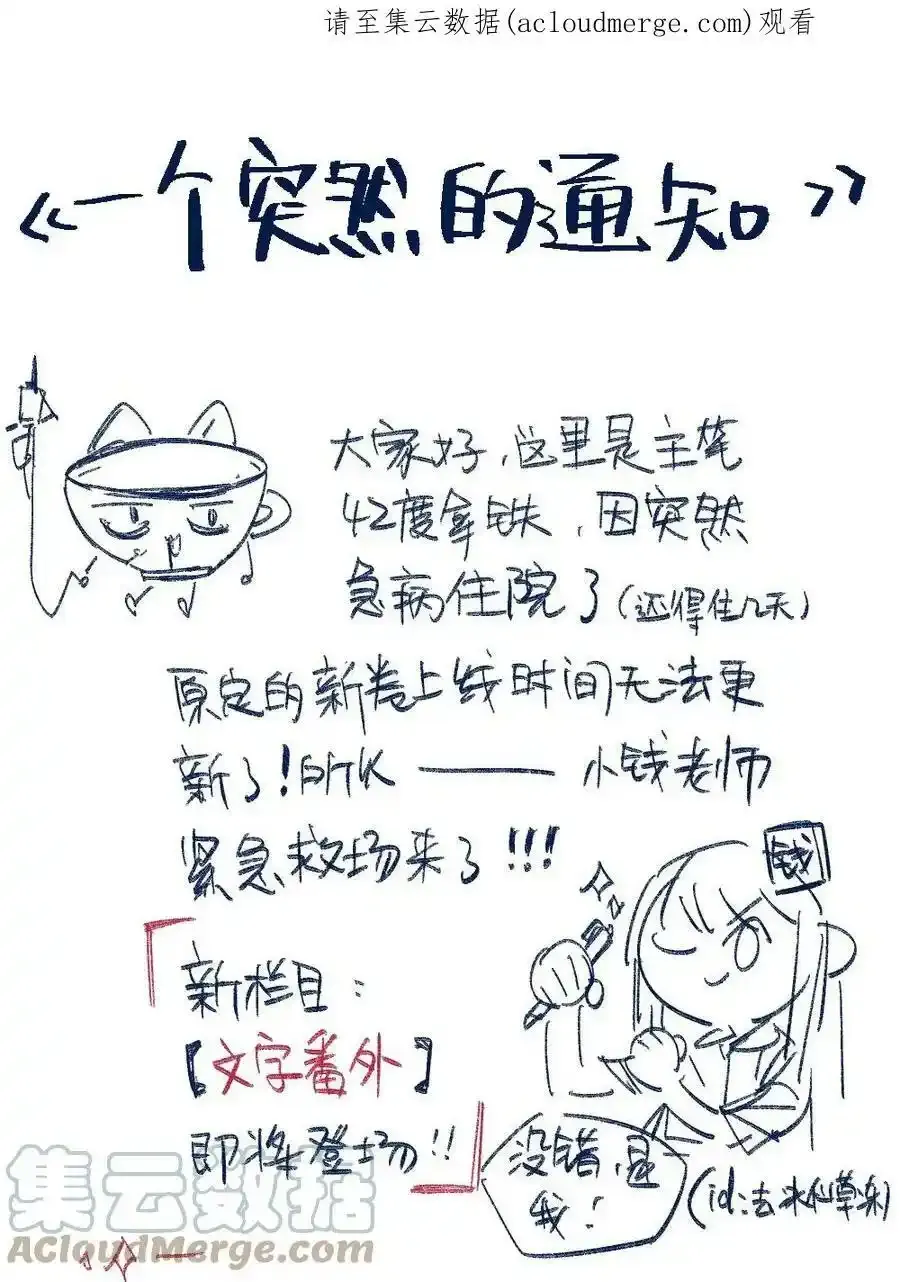 请至集云数据(acloudmerge.com)观看
《一个突然的通知》
大家好，这里是主笔
42度拿铁，因突然
急病住院了（还得住几天）
原定的新卷上线时间无法更
新了！所以——小钱老师
紧急救场来了!!!
钱
「新栏目：
【文字番外】
即将登场!!」
没错，是
我！
(id:去冰仙草冻)
集云数据
AcloudMerge.com